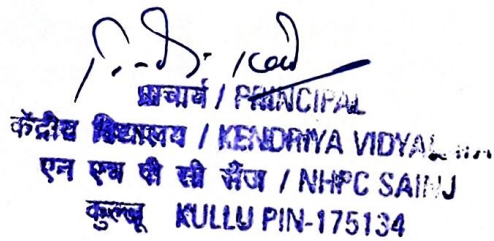 प्राचार्य / PRINCIPAL
केंद्रीय विद्यालय / KENDRIYA VIDYALAYA
एन एच पी सी सैंज / NHPC SAINJ
कुल्लू KULLU PIN-175134